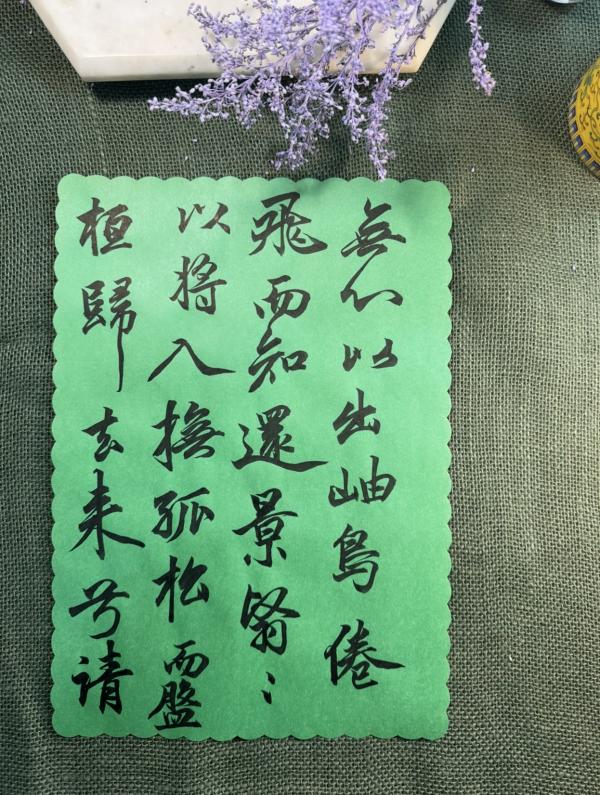 無心以出岫鳥倦
飛而知還景翳〻
以將入撫孤松而盤
桓歸去来兮请